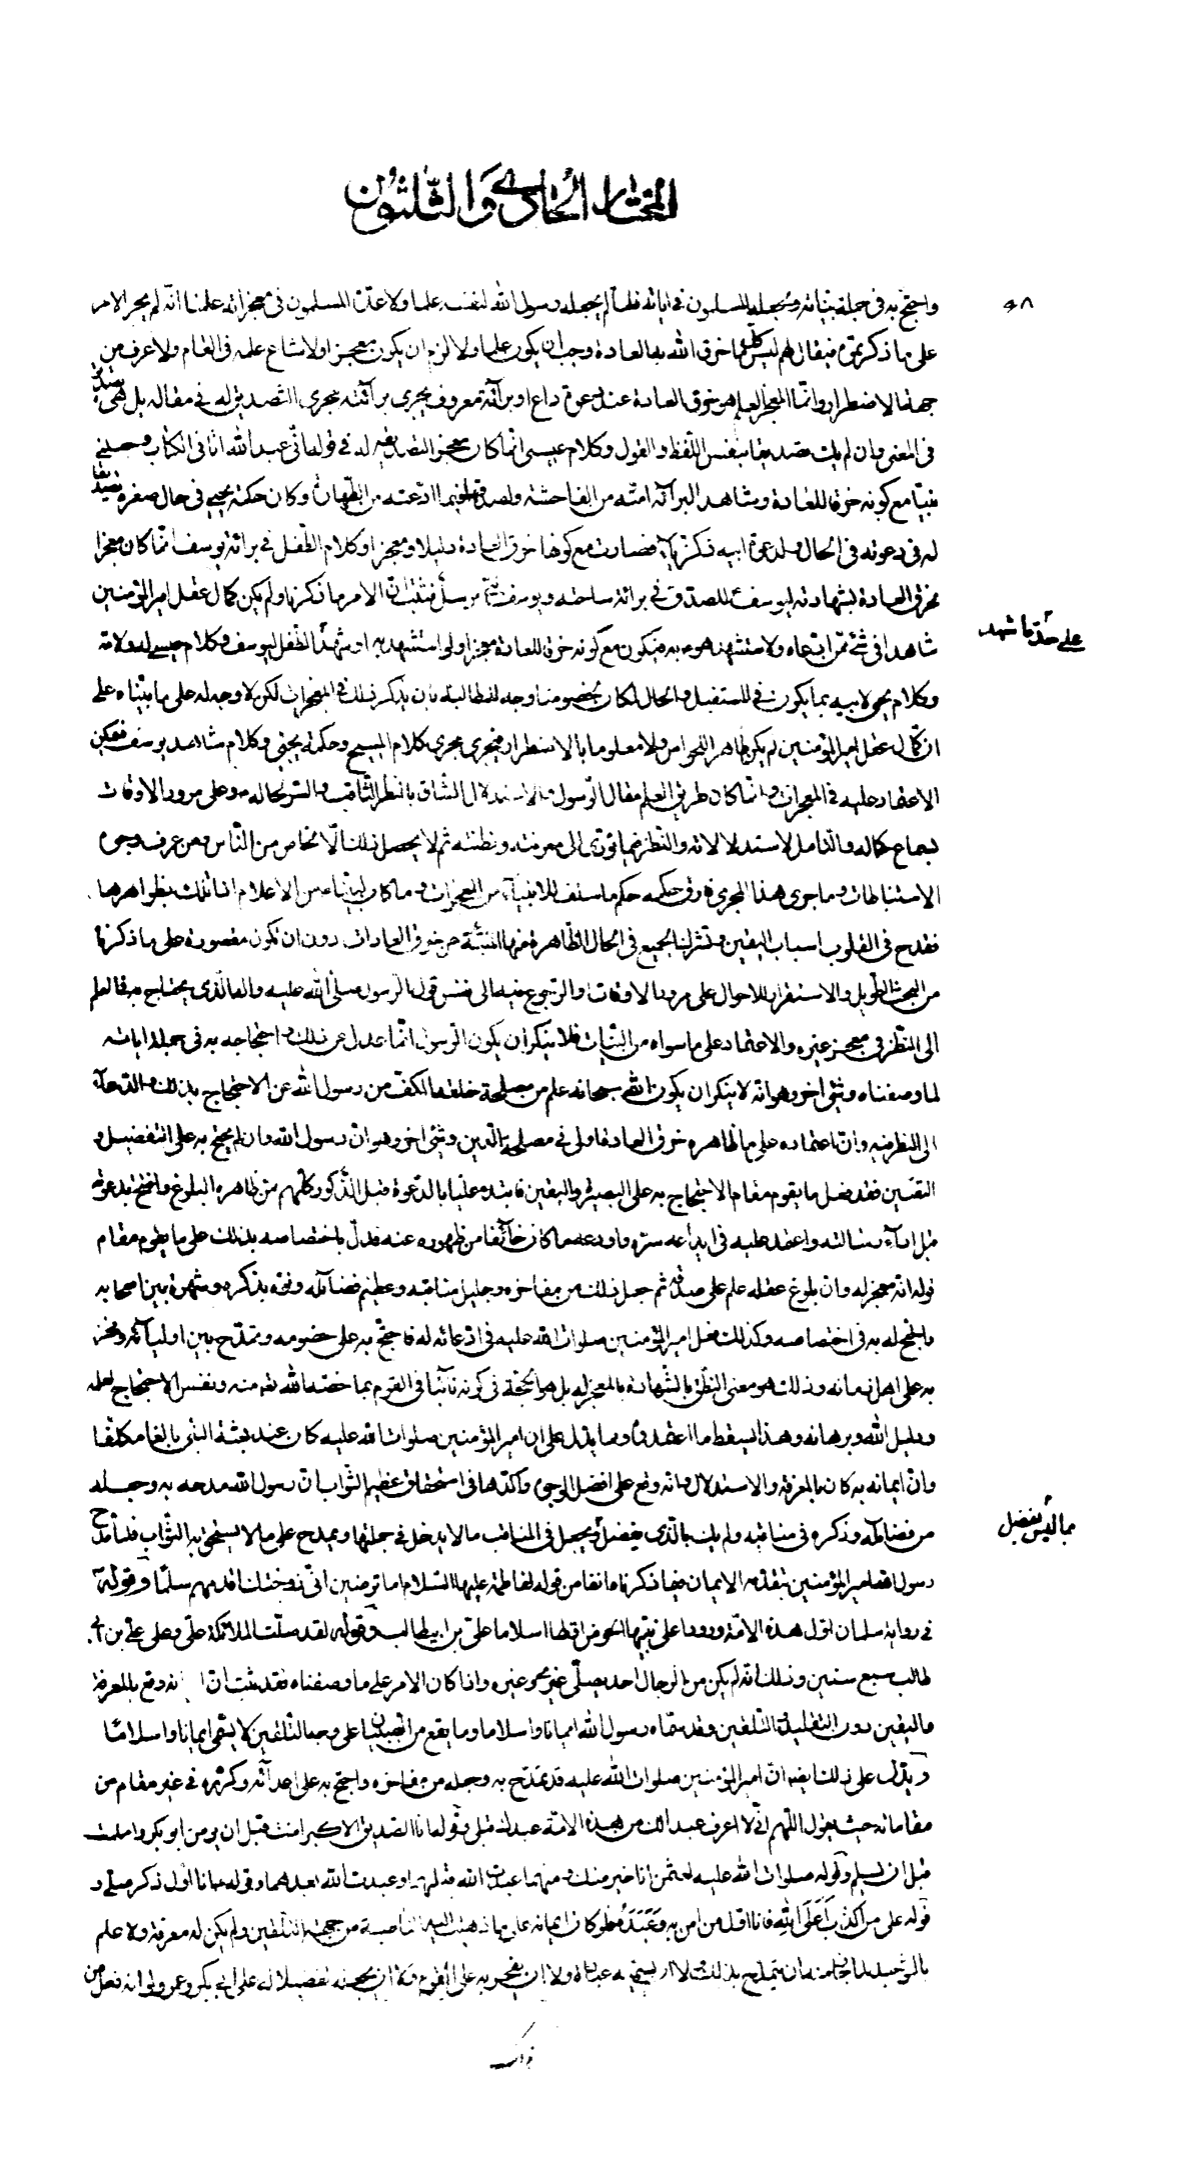 المختار الحادي والثلثون
٩٨
واحتج به في جملة بيناته ولجعله المسلمون في اياته فلما لم يجعله رسول الله لنفسه علما ولا عده المسلمون في معجزاته علمنا انه لم يجر الامر
على ما ذكرتموه فيقال لهم ليس كلما خرق الله به العادة وجب ان يكون علما ولا لزم ان يكون معجزا ولا شاع علمه في العام ولا عرف من
جهة الاضطرار وانما المعجز العلم هو خرق العادة عند دعوة داع او برآئة معروف يجري برآئته مجرى التصديق له في مقاله بل هي تصديق
في المعنى وان لم يك تصديقا بنفس اللفظ والقول وكلام عيسى انما كان معجزا لتصديقه له في قوله اني عبد الله اتاني الكتاب وجعلني
نبيا مع كونه خرقا للعادة وشاهدا لبرآئة امه من الفاحشة ولصدقها فيما ادعته من الطهارة وكان حكمة يحيى في حال صغره تصديقا
له في دعوته في الحال ولدعوة ابيه زكريا فصارت مع كونها خرق العادة دليلا ومعجزا وكلام الطفل في برائة يوسف انما كان معجزا
بخرق العادة بشهادته ليوسف للصدق في برائة ساحته ويوسف نبي مرسل فثبت ان الامر ما ذكرنا ولم يكن كمال عقل امير المؤمنين
شاهدا في شئ مما ادعاه ولا استشهد هو به فيكون مع كونه خرقا للعادة معجزا ولو استشهد به او شهد على حد ما شهد الطفل ليوسف وكلام عيسى له ولامه
وكلام يحيى لابيه بما يكون في المستقبل والحال لكان لخصومنا وجه لمطالبته بان يذكر ذلك في المعجزات لكن لا وجه له على ما بيناه على
ان كمال عقل امير المؤمنين لم يكن ظاهر اللحواس ولا معلوما بالاضطرار فيجري مجرى كلام المسيح وحكمة يحيى وكلام شاهد يوسف فيمكن
الاعتماد عليه في المعجزات وانما كان طريق العلم مقال الرسول والاستدلال الشاق بالنظر الثاقب والسر لحاله وعلى مرور الاوقات
بسماع كلامه والتامل لاستدلالاته والنظر فيما يؤدي الى معرفته وفطنته ثم لا يحصل ذلك الا لخاص من الناس ومن عرف وجوه
الاستنباطات وما جرى هذا المجرى فارق حكمه حكم ما سلف للانبياء من المعجزات وما كان لنبينا من الاعلام اذ تلك بظواهرها
تقدح في القلوب اسباب اليقين وتشترك الجميع في الحال الظاهرة منها المنبئة عن خرق العادات دون ان تكون مقصورة على ما ذكرناه
من البحث الطويل والاستقراء للاحوال على مرور الاوقات والرجوع فيه الى نفس قول الرسول صلى الله عليه واله الذي يحتاج في العلم
الى النظر في معجز غيره والاعتماد على ما سواه من البينات فلا ينكر ان يكون الرسول انما عدل عن ذلك واحتجاجه به في جملة اياته
لما وصفناه وشئ اخر وهو انه لا ينكر ان يكون الله سبحانه علم من مصلحة خلقه الكف من رسول الله عن الاحتجاج بذلك والدعاء
الى النظر فيه وان اعتماده على ما ظاهره خرق العادة اولى في مصلحة الدين وشئ اخر وهو ان رسول الله وان لم يحتج به على التفصيل و
التعيين فقد فعل ما يقوم مقام الاحتجاج به على البصيرة واليقين فابتدء عليا بالدعوة قبل الذكور كلهم ممن ظاهره البلوغ وافتتح بدعوته
قبل اداء رسالته واعتمد عليه في ايداعه سره واودعه ما كان خائفا من ظهوره عنه فدل باختصاصه بذلك على ما يقوم مقام
قوله انه معجز له وان بلوغ عقله علم على صدقه ثم جعل ذلك من مفاخره وجليل مناقبه وعظيم فضائله ونوه بذكره وشهره بين اصحابه
واحتج له به في اختصاصه وكذلك فعل امير المؤمنين صلوات الله عليه في ادعائه له فاحتج به على خصومه وتمدح بين اوليائه وفخر
به على اهل زمانه وذلك هو معنى النطق بالشهادة بالمعجز له بل هو الحجة في كونه نائبا في القوم بما خصه الله به منه ونفس الاحتجاج لعلمه
ودليل الله وبرهانه وهذا يسقط ما اعتمدوه ومما يدل على ان امير المؤمنين صلوات الله عليه كان عند بعثة النبي بالغا مكلفا
وان ايمانه به كان بالمعرفة والاستدلال وانه وقع على افضل الوجوه واكدها في استحقاق عظيم الثواب ان رسول الله مدحه به وجعله
من فضائله وذكره في مناقبه ولم يك بالذي يفضل بما ليس بفضل ويجعل في المناقب ما لا يدخل في جملتها ويمدح على ما لا يستحق به الثواب فلما مدح
رسول الله امير المؤمنين بتقدم الايمان فيما ذكرناه انفا من قوله لفاطمة عليها السلام اما ترضين اني زوجتك اقدمهم سلما وقوله
في رواية سلمان اول هذه الامة ورودا على نبيها الحوض اولها اسلاما علي بن ابيطالب وقوله لقد صلت الملائكة علي وعلى علي بن ابي
طالب سبع سنين وذلك انه لم يكن من الرجال احد يصلي غيري وغيره واذا كان الامر على ما وصفناه فقد ثبت ان ا انه وقع بالمعرفة
واليقين دون التقليد والتلقين وقد سماه رسول الله ايمانا واسلاما وما يقع من الصبيان على وجه التلقين لا يسمى ايمانا واسلاما
ويدل على ذلك ايضا ان امير المؤمنين صلوات الله عليه قد تمدح به وجعله من مفاخره واحتج به على اعدائه وكرره في غير مقام من
مقاماته حيث يقول اللهم اني لا اعرف عبدا لك من هذه الامة عبدك قبلي وقوله انا الصديق الاكبر امنت قبل ان يومن ابو بكر واسلمت
قبل ان يسلم وقوله صلوات الله عليه لعثمن انا خير منك ومنهما عبدت الله قبلهما وعبدت الله بعدهما وقوله انا اول ذكر صلى و
قوله على من اكذب اعلى الله فانا اول من امن به وعبده فلو كان ايمانه على ما ذهبت اليه الناصبة من جهة التلقين ولم يكن له معرفة ولا علم
بالتوحيد لما جاز منه ان يتمدح بذلك ولا ان يسميه عبادة ولا ان يفخر به على القوم ولا ان يجعله تفضيلا له على ابي بكر وعمر ولو انه فعل من
ذلك